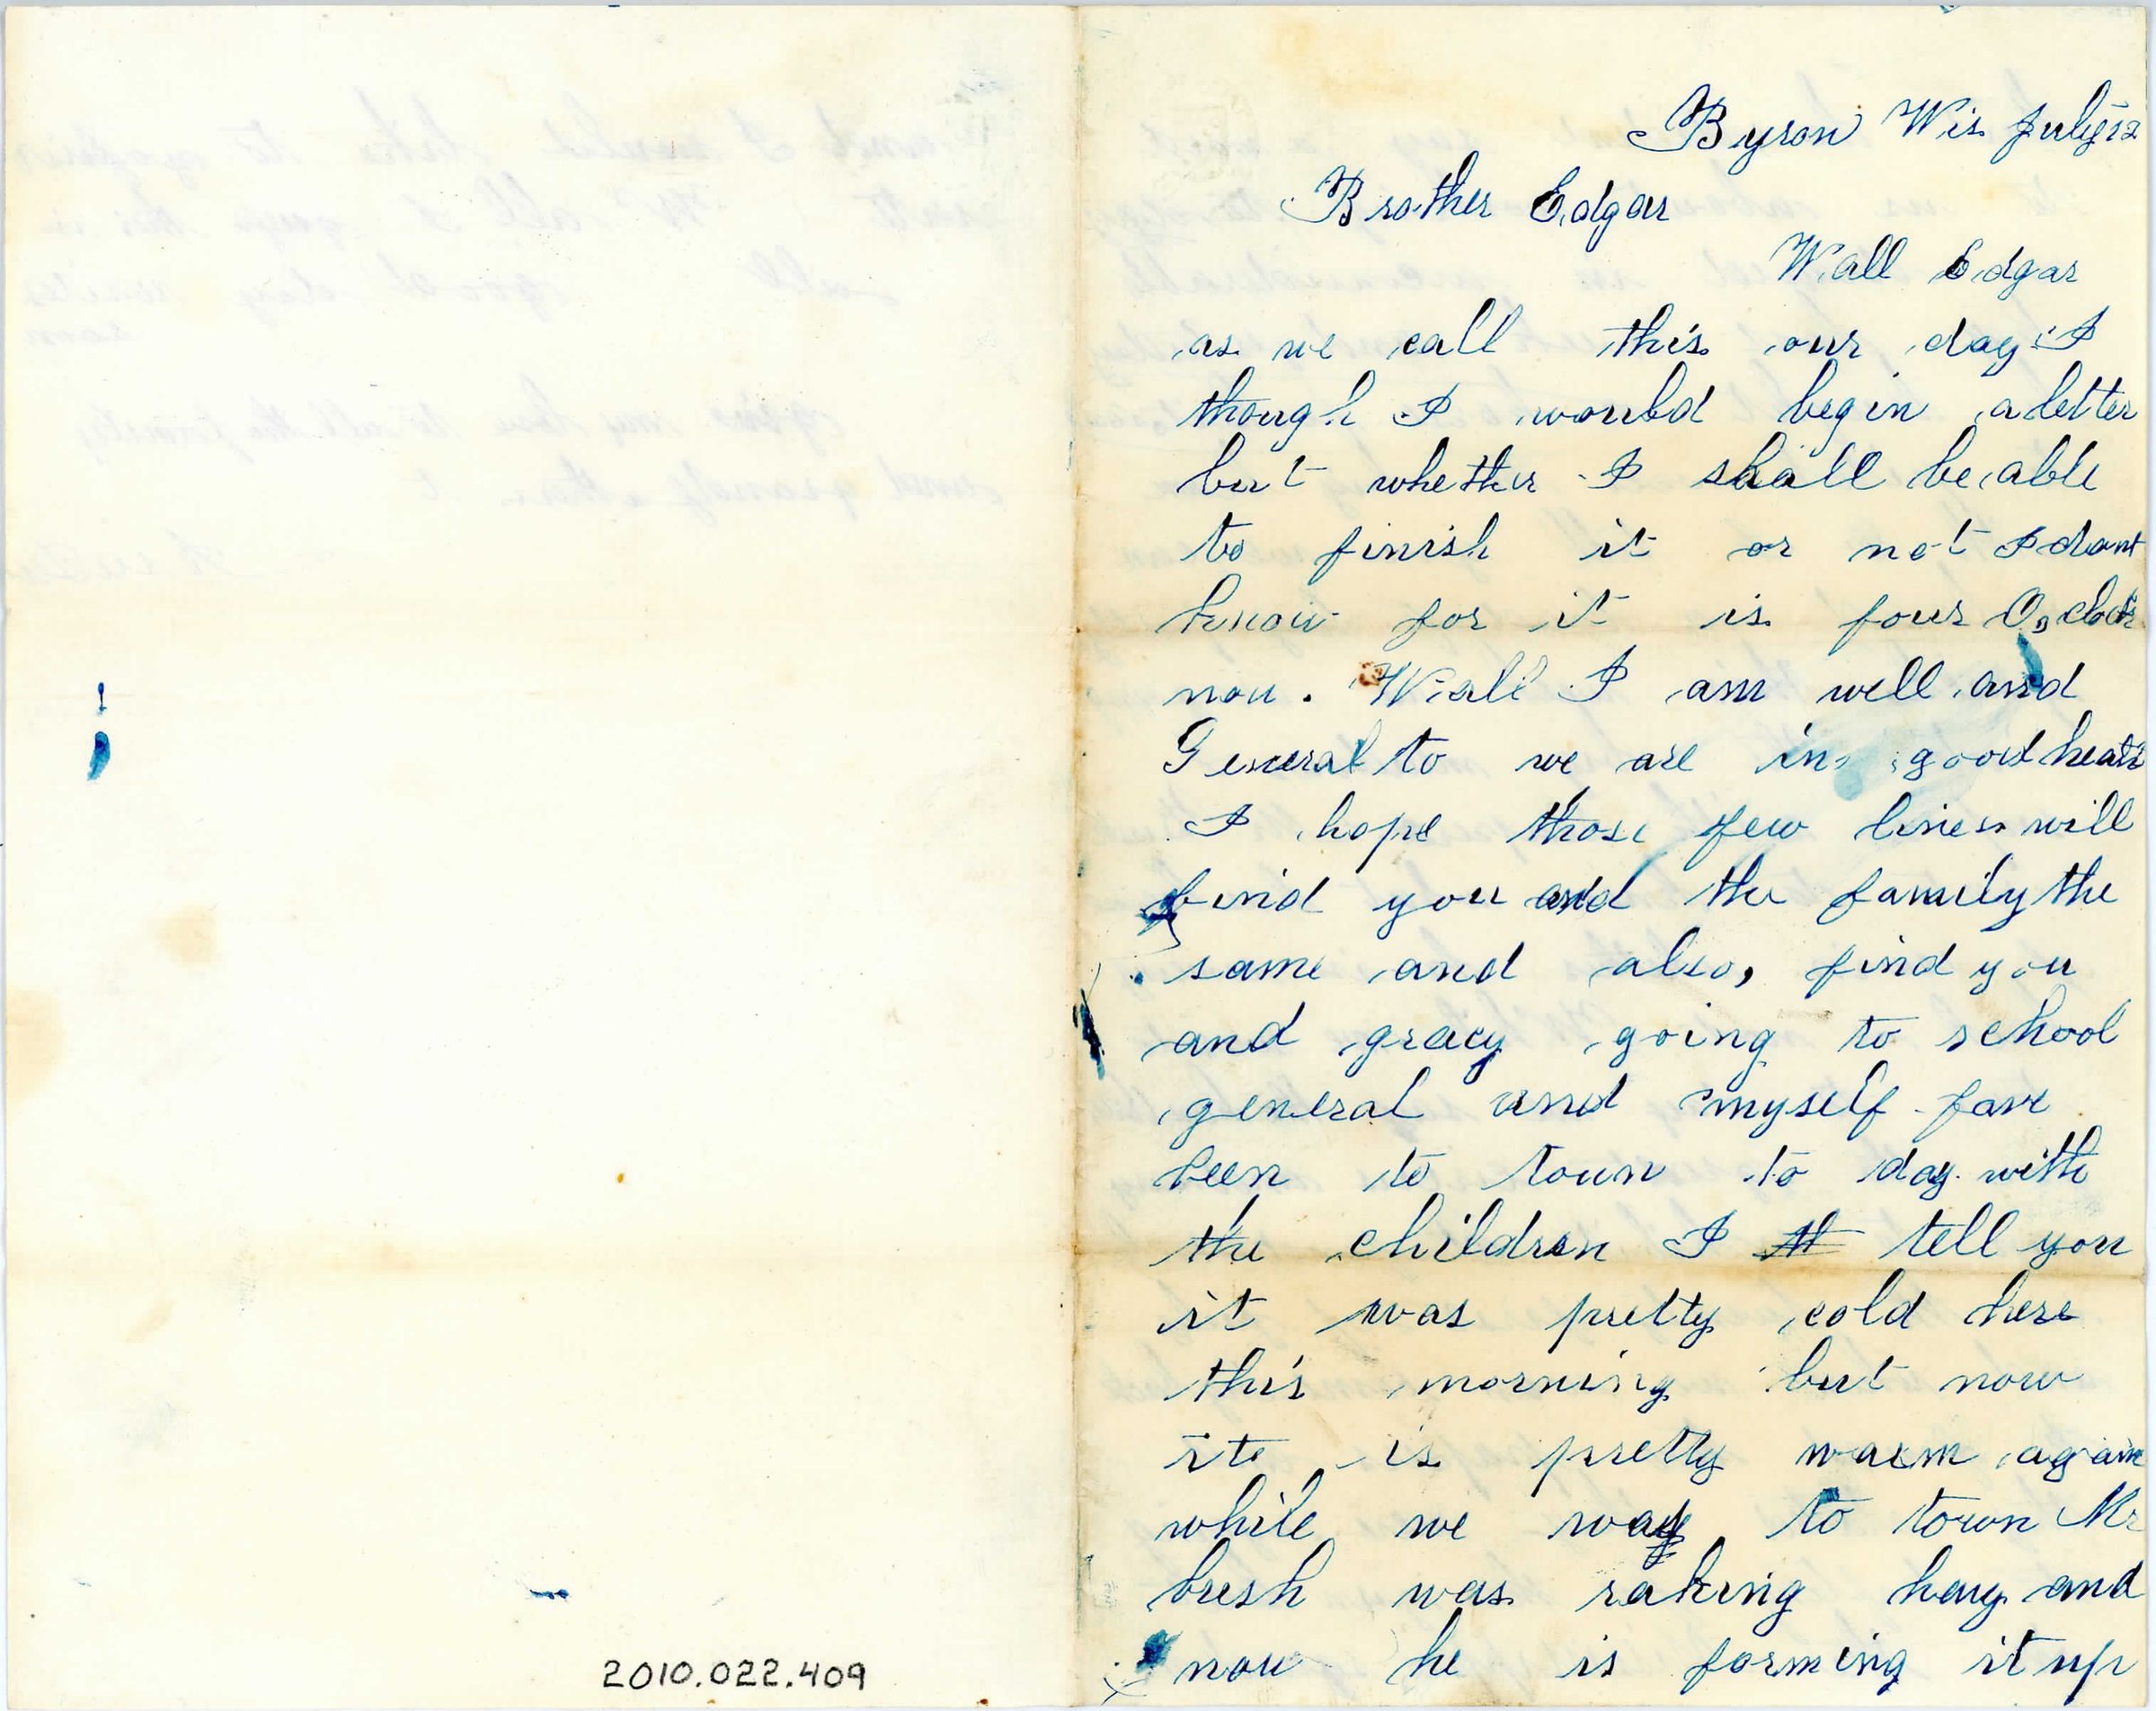 2010.022.409
Byron Wis July 12
Brother Edgar
Wall Edgar
as we call this our day I
though I would begin a letter
but whether I shall be able
to finish it or not I dont
know for it is four O,clock
now. Wall I am well and
General to we are in good
I hope those few lines will
find you and the family the
same and also, find you
and gracy going to school
general and myself fave
been to town to day with
the children I tell you
it was pretty cold here
this morning but now
it is pretty warm again
while we to town Mr
bush was raking hay and
now he is forming it up